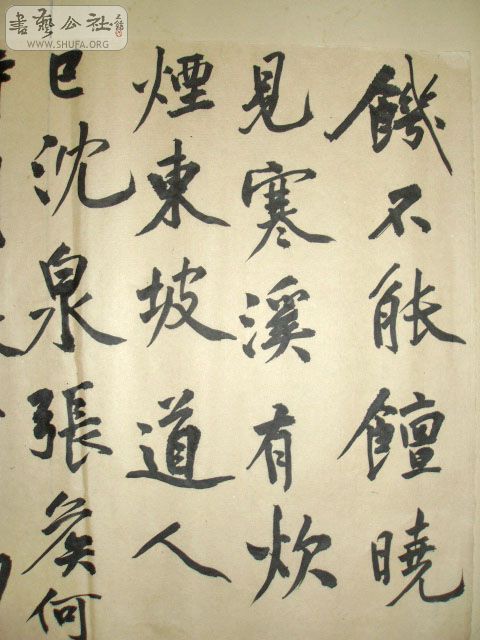 書藝公社
WWW.SHUFA.ORG
饑不能饘曉
見寒溪有炊
煙東坡道人
已沈泉張侯何